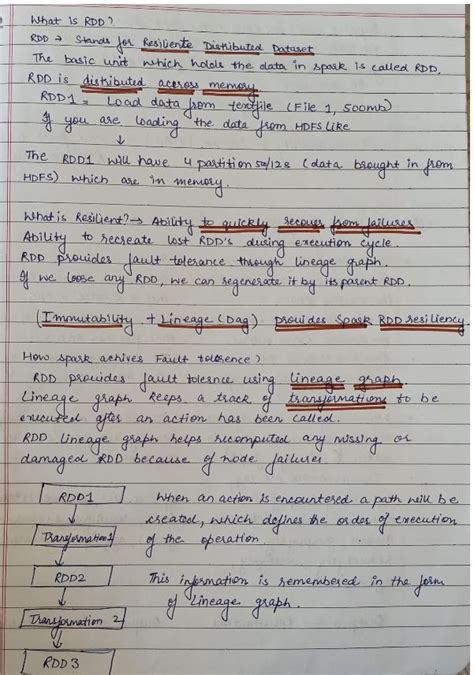 What is RDD?
RDD → Stands for Resiliente Distributed Dataset
The basic unit which holds the data in spark is called RDD.
RDD is distributed accross memory
RDD1 = Load data from textfile (File 1, 500mb)
If you are loading the data from HDFS like
↓
The RDD1 will have 4 partition 500/128 (data brought in from
HDFS) which are in memory.
What is Resilient? → Ability to quickly recover from failures
Ability to recreate lost RDD's during execution cycle.
RDD provides fault tolerance through lineage graph.
If we loose any RDD, we can regenerate it by its parent RDD.
(Immutability + Lineage (Dag) provides Spark RDD resiliency
How spark achives Fault tolerence?
RDD provides fault tolernce using lineage graph.
Lineage graph keeps a track of transformations to be
executed after an action has been called.
RDD Lineage graph helps recomputed any missing or
damaged RDD because of node failures.
RDD1
When an action is encountered a path will be
created, which defines the order of execution
Transformation 1
of the operation.
RDD2
This information is remembered in the form
of Lineage graph.
Transformation 2
RDD 3